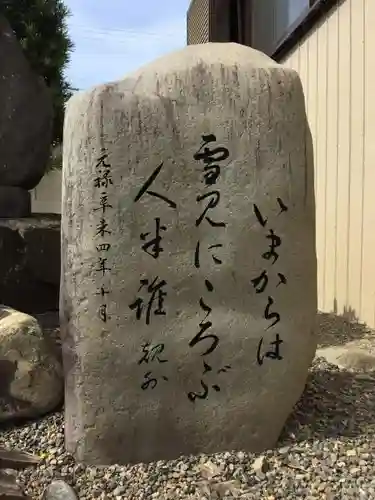 いまからは
雪見にころぶ
人半誰
元禄辛未四年十月